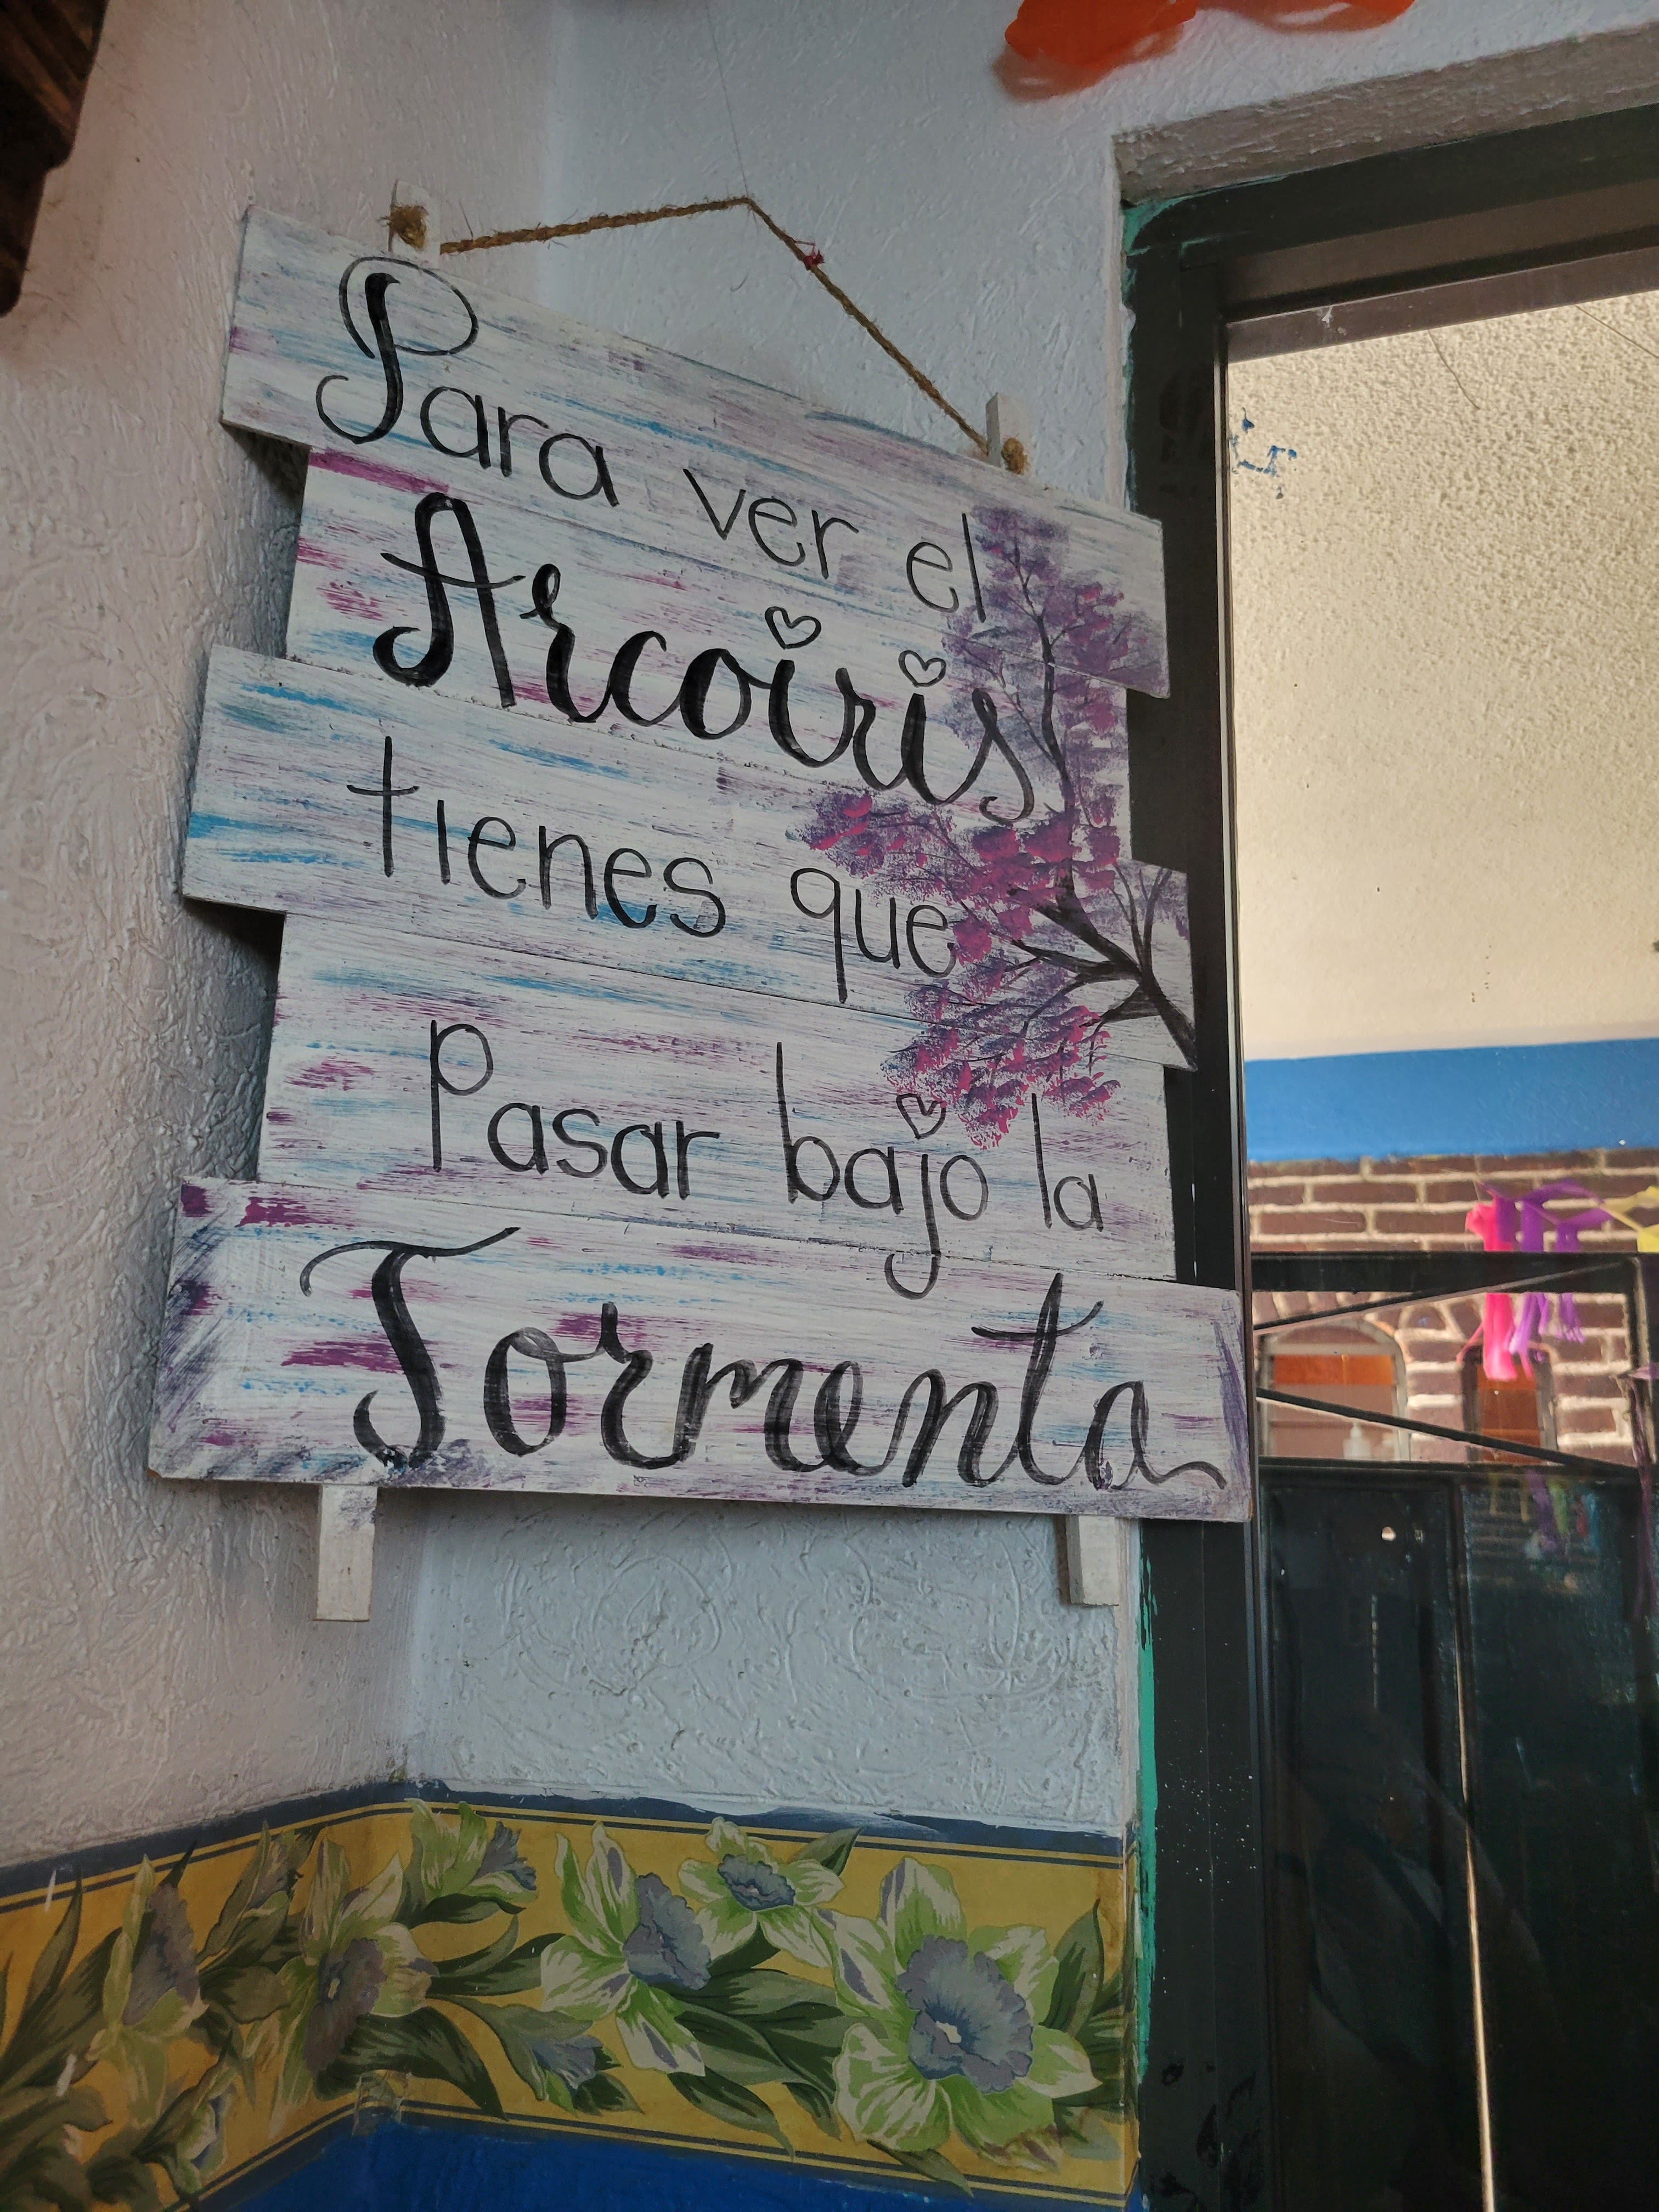 Para ver el
Arcoiris
tienes que
Pasar bajo la
Tormenta